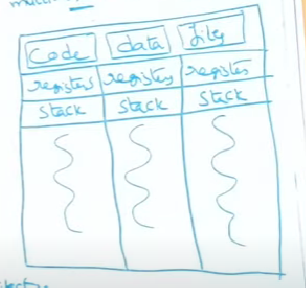 code data files
registers registers registers
stack stack stack